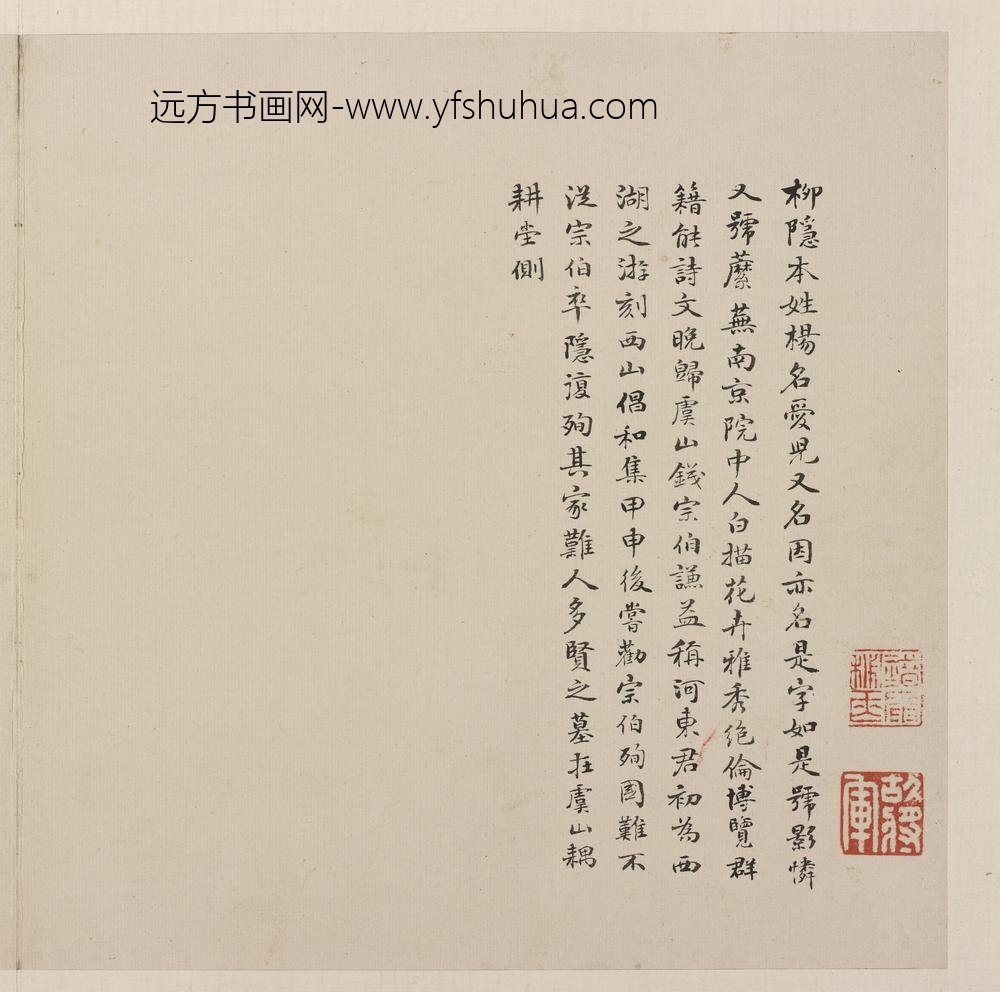 远方书画网-www.yfshuhua.com
柳隱本姓楊名愛児又名因亦名是字如是號影憐
又號蘼蕪南京院中人白描花卉雅秀絶倫博覽群
籍能詩文晚歸虞山錢宗伯謙益稱河東君初為西
湖之游刻西山倡和集甲申後嘗勸宗伯殉國難不
從宗伯卒隱復殉其家難人多賢之墓在虞山耦
耕堂側
故將軍